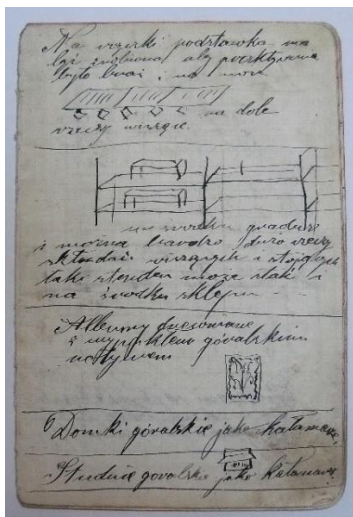 Na wizerki podstawka ma
być zrobiona aby praktyczna
było brać i na
na dole
rzeczy wiszące
na środku
i można bardzo dużo rzeczy
składać wiszących i stojących
taki stender może stać i
na środku sklepu
Albumy
z wypukłem góralskim
motywem
Domki góralskie jako kałamarze,
Studnie góralskie jako kałamarze,